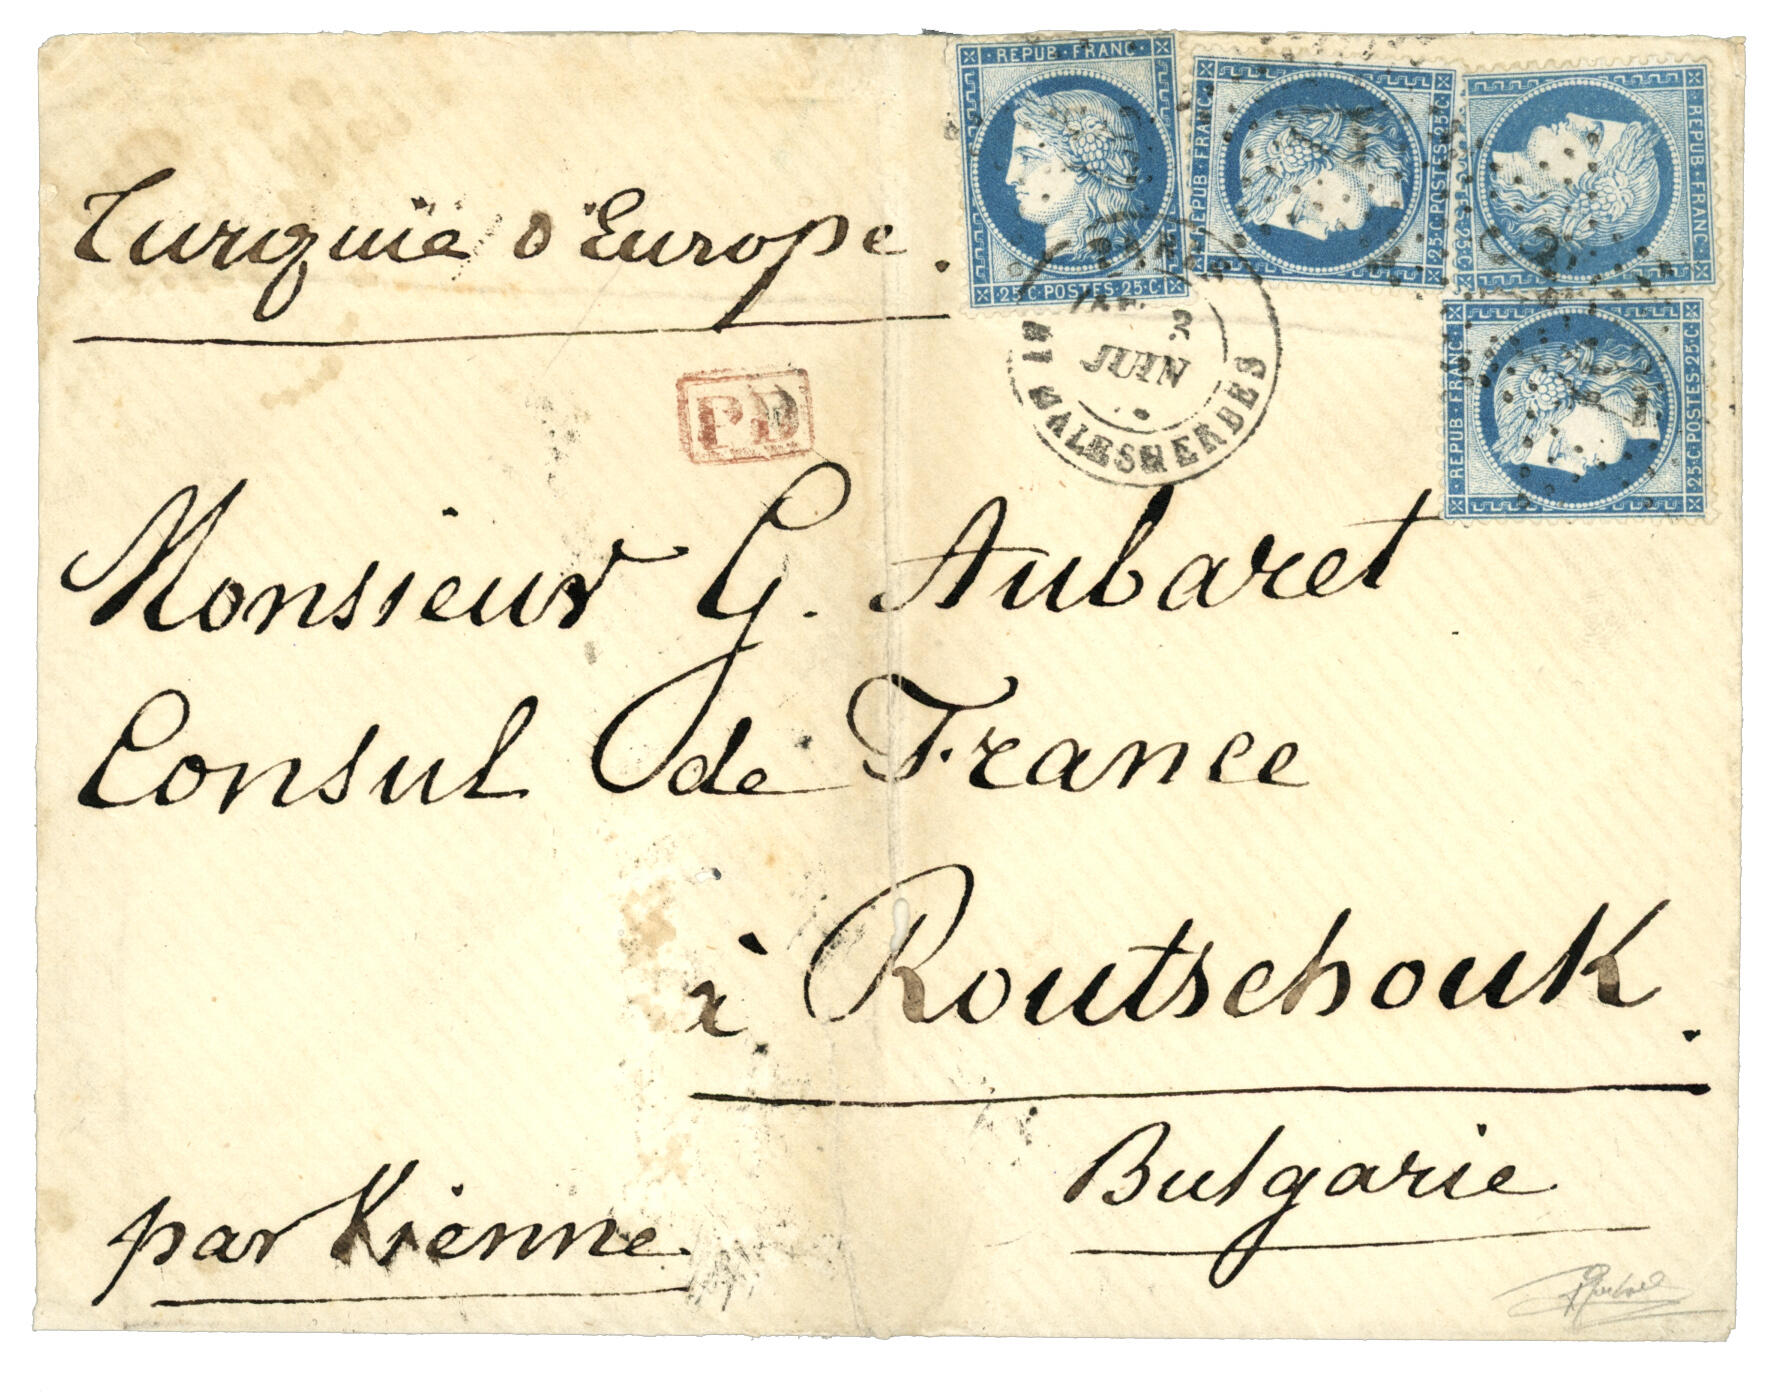 REPUB · FRANC ·
· 25 · C · POSTES · 25 · C ·
REPUB · FRANC
25 · C · POSTES · 25 · C
REPUB · FRANC
REPUB · FRANC
25 · C · POSTES · 25 · C
Turquie d'Europe.
PARIS
2E
JUIN
MALESHERBES
PD
Monsieur G. Aubaret
Consul de France
à Routschouk.
Bulgarie
par Vienne